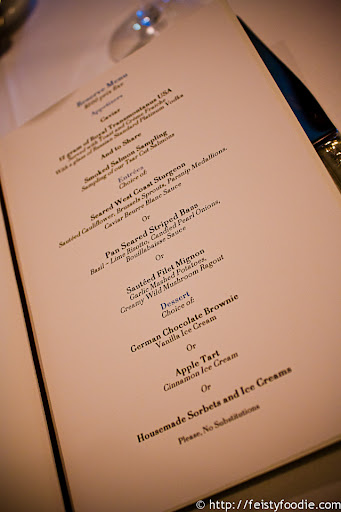 Reserve Menu
Appetizers
Caviar
12 gram of Royal Transmontanus USA
Served with Toast and Crème Fraiche
With a glass of Russian Standard Platinum Vodka
And to Share
Smoked Salmon Sampling
Sampling of our Tsar Cut Salmons
Entrées
Choice of:
Seared West Coast Sturgeon
Sautéed Cauliflower, Brussels Sprouts, Parsnip Medallions,
Caviar Beurre Blanc Sauce
Or
Pan Seared Striped Bass
Basil - Lime Risotto, Candied Pearl Onions,
Bouillabaisse Sauce
Or
Sautéed Filet Mignon
Garlic Mashed Potatoes,
Creamy Wild Mushroom Ragout
Dessert
Choice of:
German Chocolate Brownie
Vanilla Ice Cream
Or
Apple Tart
Cinnamon Ice Cream
Or
Housemade Sorbets and Ice Creams
Please, No Substitutions
© http://feistyfoodie.com